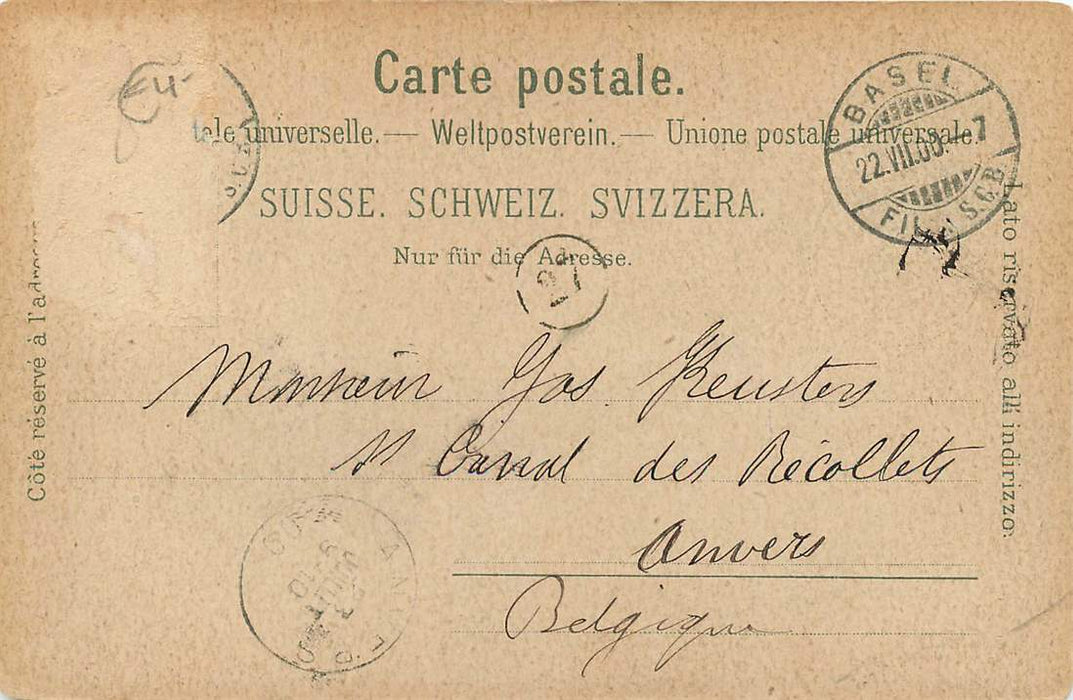 Carte postale.
universelle. — Weltpostverein. — Unione postale universale.
SUISSE. SCHWEIZ. SVIZZERA.
Nur für die Adresse.
Côté réservé à l'adresse
Lato riservato all indirizzo.
BASEL
22.VII.00. - 7
FIL. S.C.B
27
Monsieur Jos Keusters
Canal des Récollets
Anvers
Belgique
ANVERS